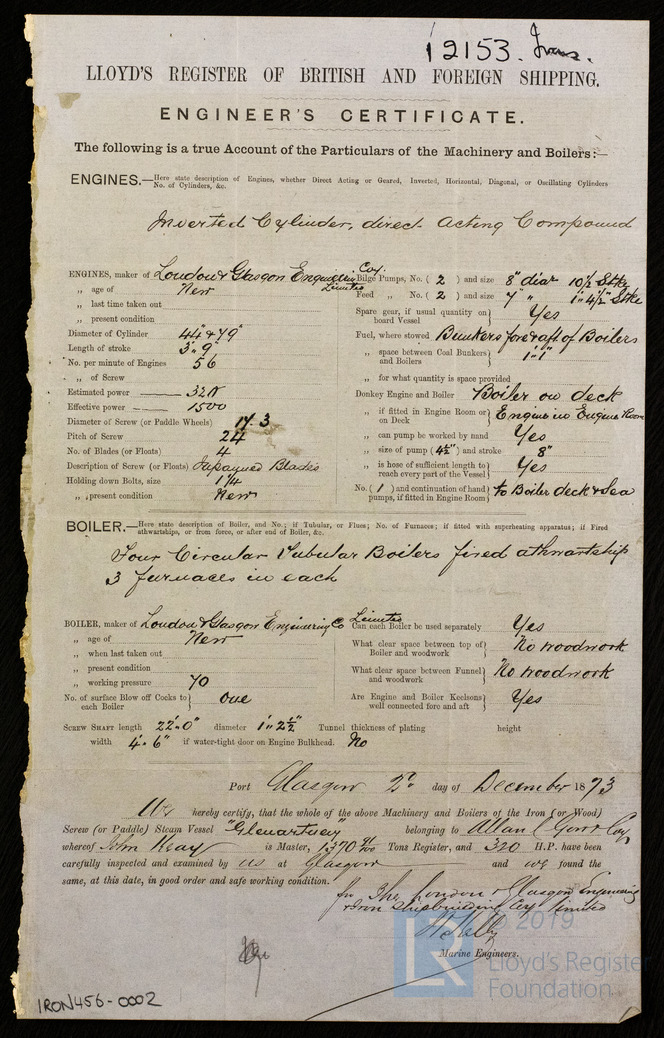 12153. Iron.
LLOYD'S REGISTER OF BRITISH AND FOREIGN SHIPPING.
ENGINEER'S CERTIFICATE.
The following is a true Account of the Particulars of the Machinery and Boilers:—
ENGINES.—Here state description of Engines, whether Direct Acting or Geared, Inverted, Horizontal, Diagonal, or Oscillating Cylinders
No. of Cylinders, &c.
Inverted Cylinder, direct acting Compound
ENGINES, maker of London & Glasgow Engineering Coy. Limited
„ age of New
„ last time taken out
„ present condition
Diameter of Cylinder 44" & 79"
Length of stroke 3' 9"
No. per minute of Engines 56
„ of Screw
Estimated power — 320
Effective power — 1500
Diameter of Screw (or Paddle Wheels) 17.3
Pitch of Screw 24
No. of Blades (or Floats) 4
Description of Screw (or Floats) Blades
Holding down Bolts, size 1 1/4
„ „ present condition New
Bilge Pumps, No. ( 2 ) and size 8" diar 10 1/2 Stke
Feed „ No. ( 2 ) and size 7" „ 1" 4 1/2 Stke
Spare gear, if usual quantity on board Vessel } Yes
Fuel, where stowed Bunkers fore & aft of Boilers
„ space between Coal Bunkers and Boilers } 1' 1"
„ for what quantity is space provided
Donkey Engine and Boiler Boiler on deck
„ if fitted in Engine Room or on Deck } Engine in Engine Room
„ can pump be worked by hand Yes
„ size of pump ( 4 1/2" ) and stroke 8"
„ is hose of sufficient length to reach every part of the Vessel } Yes
No. ( 1 ) and continuation of hand pumps, if fitted in Engine Room } to Boiler deck & Sea
BOILER.—Here state description of Boiler, and No.; if Tubular, or Flues; No. of Furnaces; if fitted with superheating apparatus; if Fired
athwartships, or from force, or after end of Boiler, &c.
Four Circular Tubular Boilers fired athwartship
3 furnaces in each
BOILER, maker of London & Glasgow Engineering Co Limited
„ age of New
„ when last taken out
„ present condition
„ working pressure 70
No. of surface Blow off Cocks to each Boiler } one
Can each Boiler be used separately Yes
What clear space between top of Boiler and woodwork } No woodwork
What clear space between Funnel and woodwork } No woodwork
Are Engine and Boiler Keelsons well connected fore and aft } Yes
SCREW SHAFT length 22'.0" diameter 1".2 1/2" Tunnel thickness of plating height
width 4'.6" if water-tight door on Engine Bulkhead. No
Port Glasgow 2d day of December 1873
We hereby certify, that the whole of the above Machinery and Boilers of the Iron (or Wood)
Screw (or Paddle) Steam Vessel "Glenartney" belonging to Allan C Gow & Coy
whereof John Kay is Master, 1370 91/100 Tons Register, and 320 H.P. have been
carefully inspected and examined by us at Glasgow and we found the
same, at this date, in good order and safe working condition.
for The London & Glasgow Engineering
& Iron Shipbuilding Coy Limited
Marine Engineers.
© 2019
LR
Lloyd's Register
Foundation
IRON456-0002